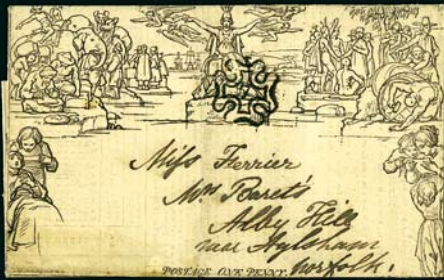 Miss Ferrier
Mrs Baret's
Alby Hill
near Aylsham
Norfolk.
POSTAGE ONE PENNY.